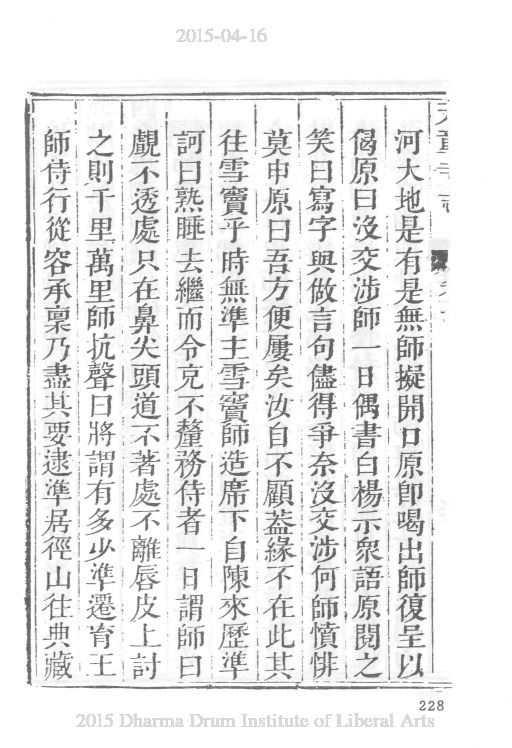 2015-04-16
河大地是有是無師擬開口原卽喝出師復呈以
偈原曰沒交涉師一日偶書白楊示衆語原閱之
笑曰寫字與做言句儘得爭奈沒交涉何師憤悱
莫申原曰吾方便屢矣汝自不顧葢緣不在此其
往雪竇乎時無準主雪竇師造席下自陳來歷準
訶曰熟睡去繼而令充不釐務侍者一日謂師曰
覷不透處只在鼻尖頭道不著處不離唇皮上討
之則千里萬里師抗聲曰將謂有多少準遷育王
師侍行從容承稟乃盡其要逮準居徑山往典藏
228
2015 Dharma Drum Institute of Liberal Arts